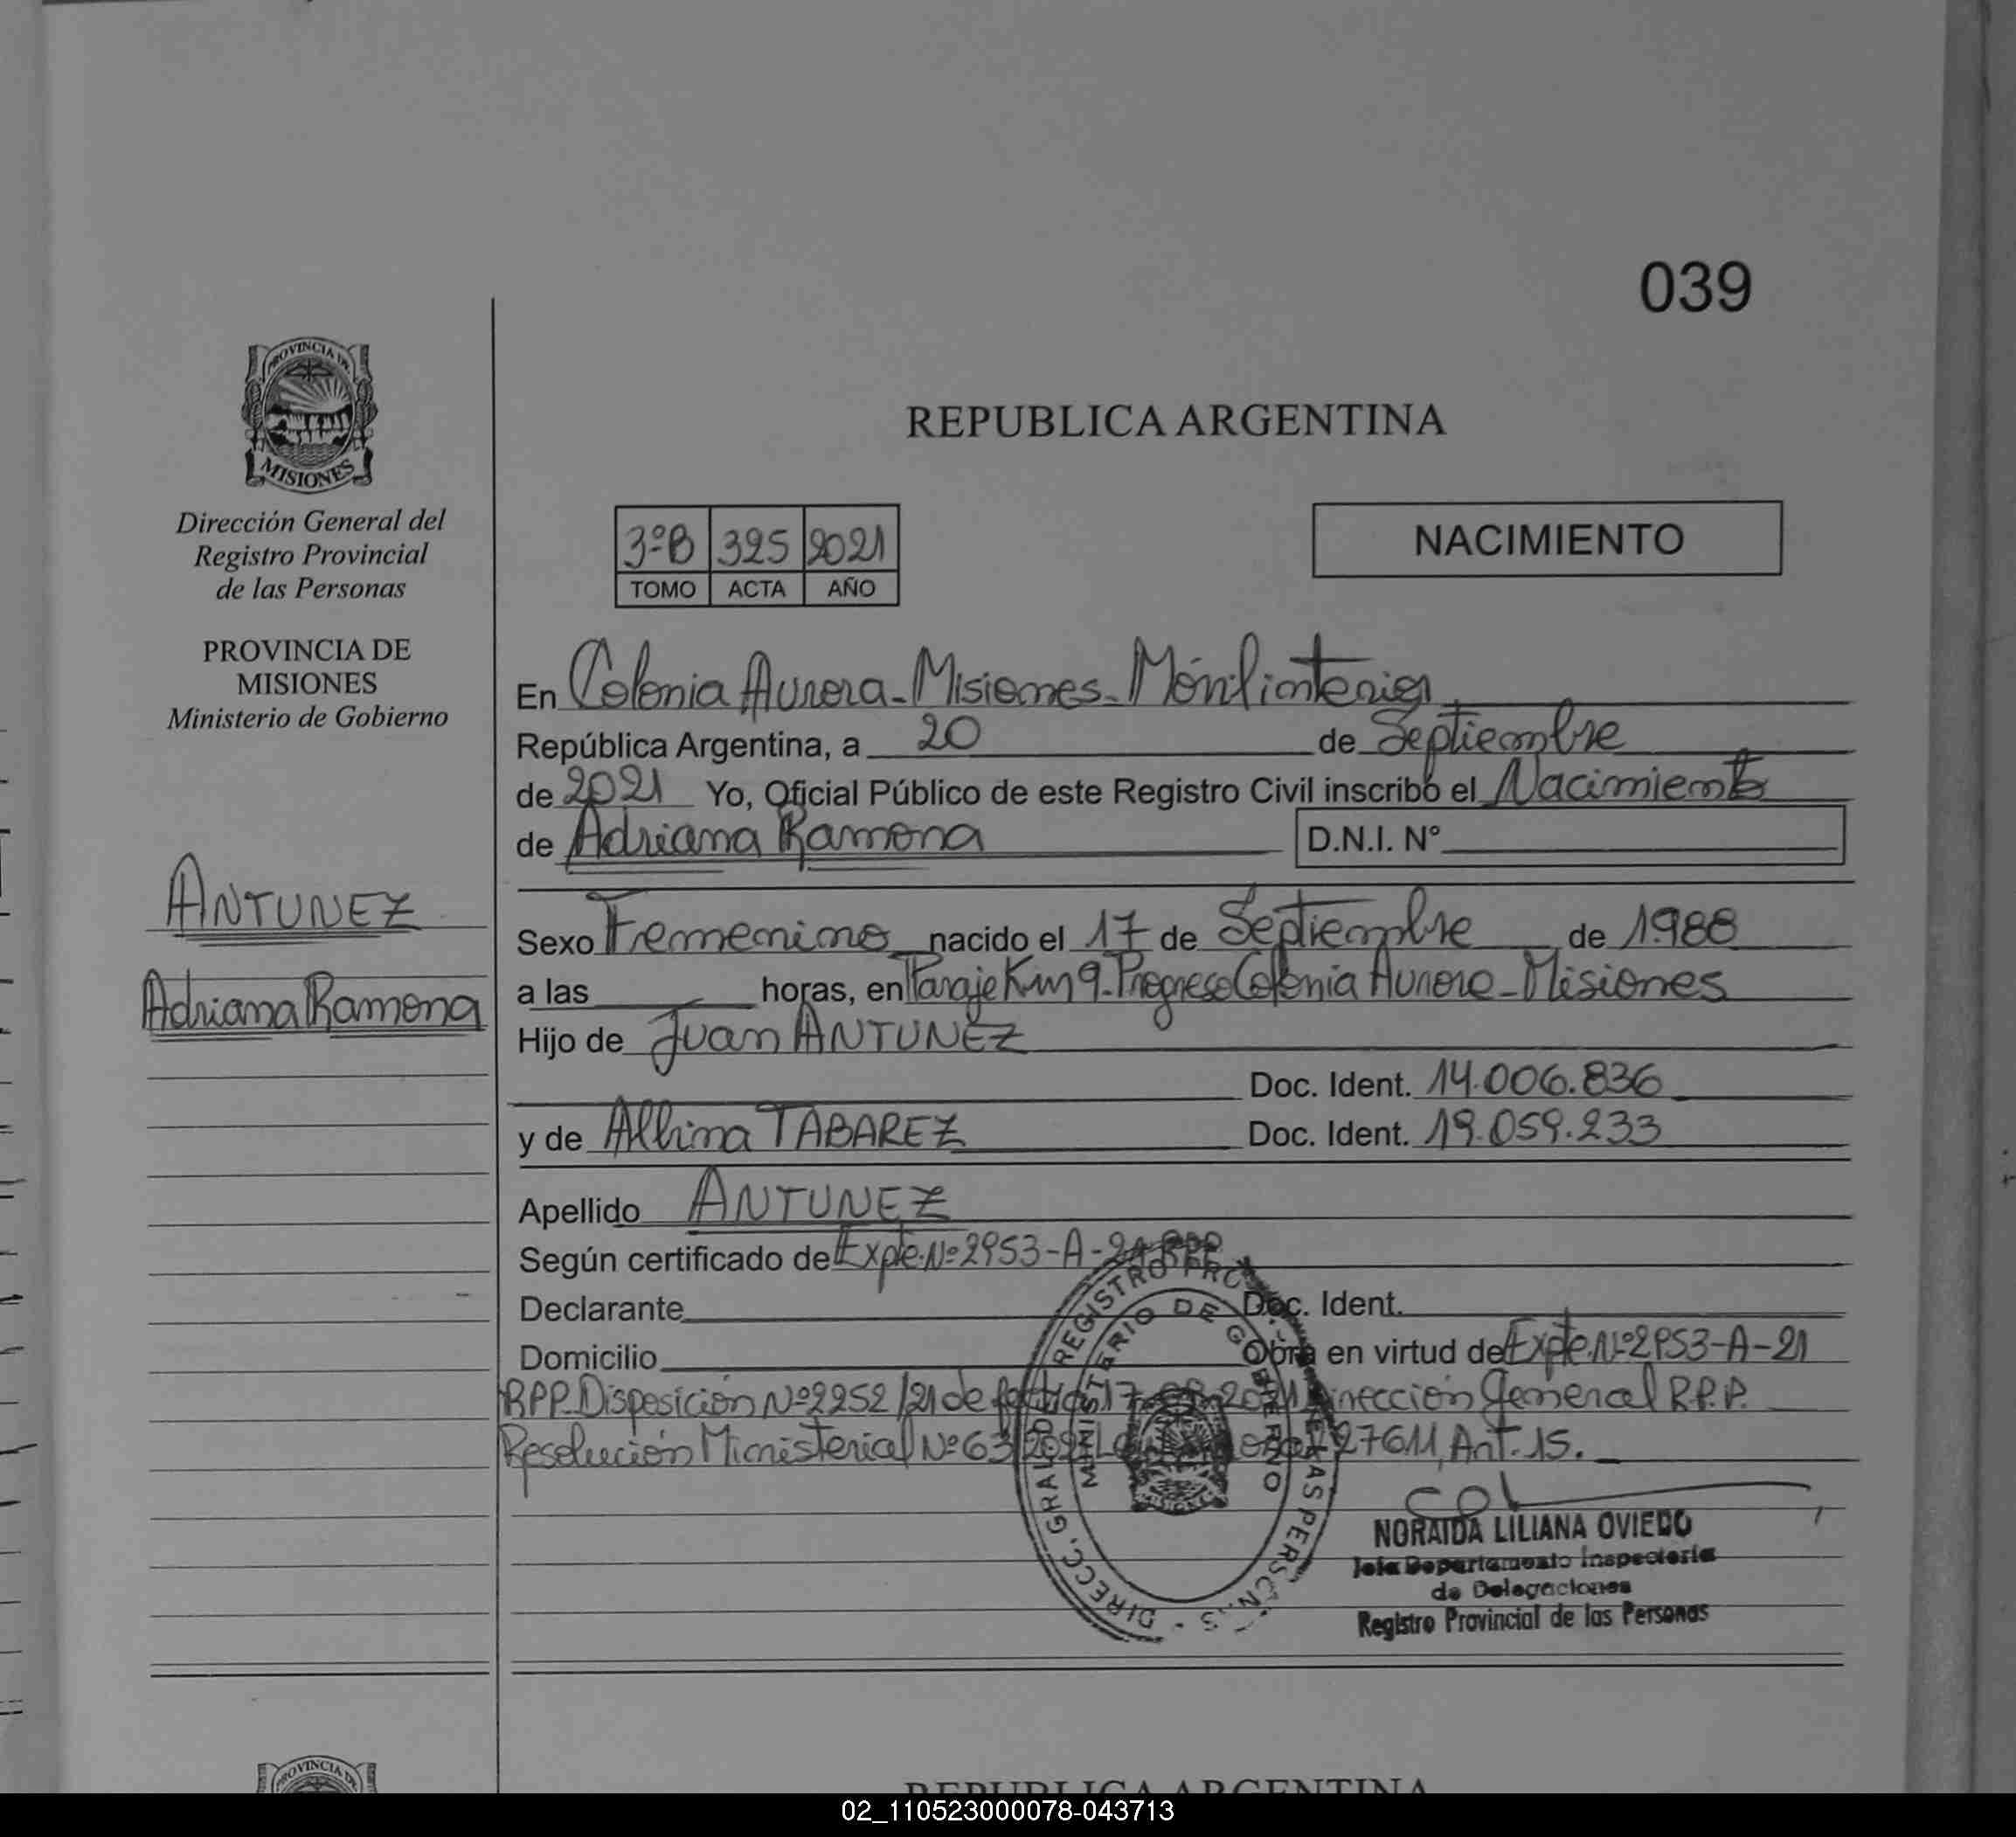 039
PROVINCIA DE
MISIONES
Dirección General del
Registro Provincial
de las Personas
PROVINCIA DE
MISIONES
Ministerio de Gobierno
ANTUNEZ
Adriana Ramona
REPUBLICA ARGENTINA
3ºB 325 2021
TOMO ACTA AÑO
NACIMIENTO
En Colonia Aurora - Misiones -
República Argentina, a 20 de Septiembre
de 2021 Yo, Oficial Público de este Registro Civil inscribo el Nacimiento
de Adriana Ramona D.N.I. Nº
Sexo Femenino nacido el 17 de Septiembre de 1.988
a las horas, en Paraje Km 9 - Progreso Colonia Aurora - Misiones
Hijo de Juan ANTUNEZ
Doc. Ident. 14.006.836
y de Albina TABAREZ Doc. Ident. 19.059.233
Apellido ANTUNEZ
Según certificado de Expte. Nº 2953-A-21 RPP
Declarante Doc. Ident.
Domicilio Obra en virtud de Expte. Nº 2953-A-21
RPP. Disposición Nº 2252/21 de fecha 17 2021 Dirección General R.P.P.
Resolución Ministerial Nº 63 27611, Art. 15.
DIRECC. GRAL. REGISTRO LAS PERSONAS
MINISTERIO DE GOBIERNO
NORAIDA LILIANA OVIEDO
Jefa Departamento Inspectoria
de Delegaciones
Registro Provincial de las Personas
PROVINCIA DE
REPUBLICA ARGENTINA
02_110523000078-043713